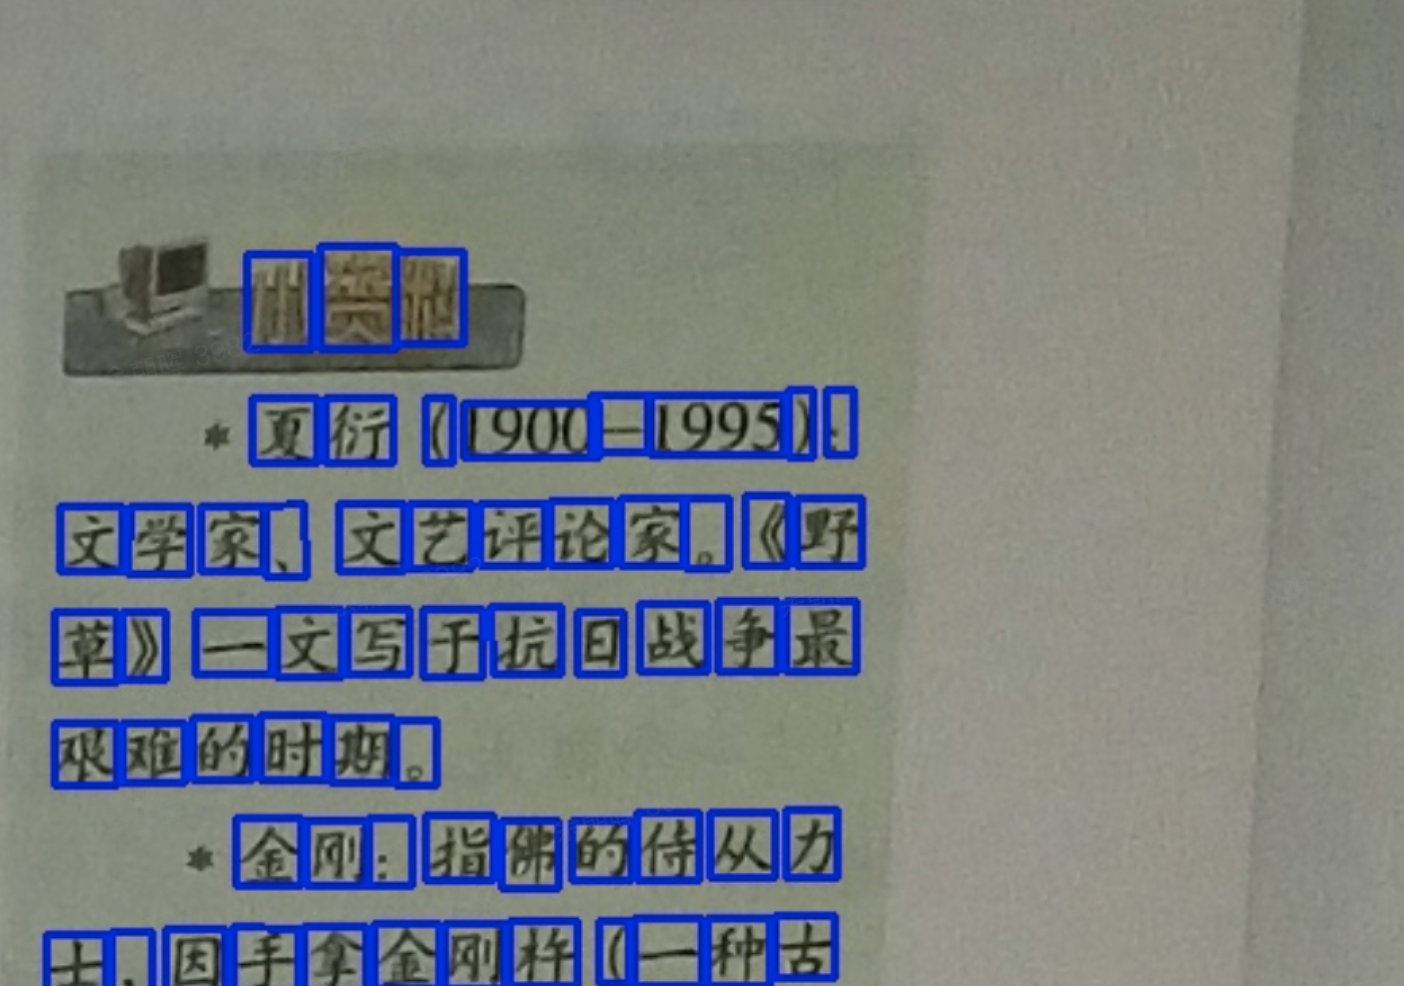 小资料
*夏衍(1900—1995):
文学家、文艺评论家。《野
草》一文写于抗日战争最
艰难的时期。
*金刚:指佛的侍从力
士,因手拿金刚杵(一种古